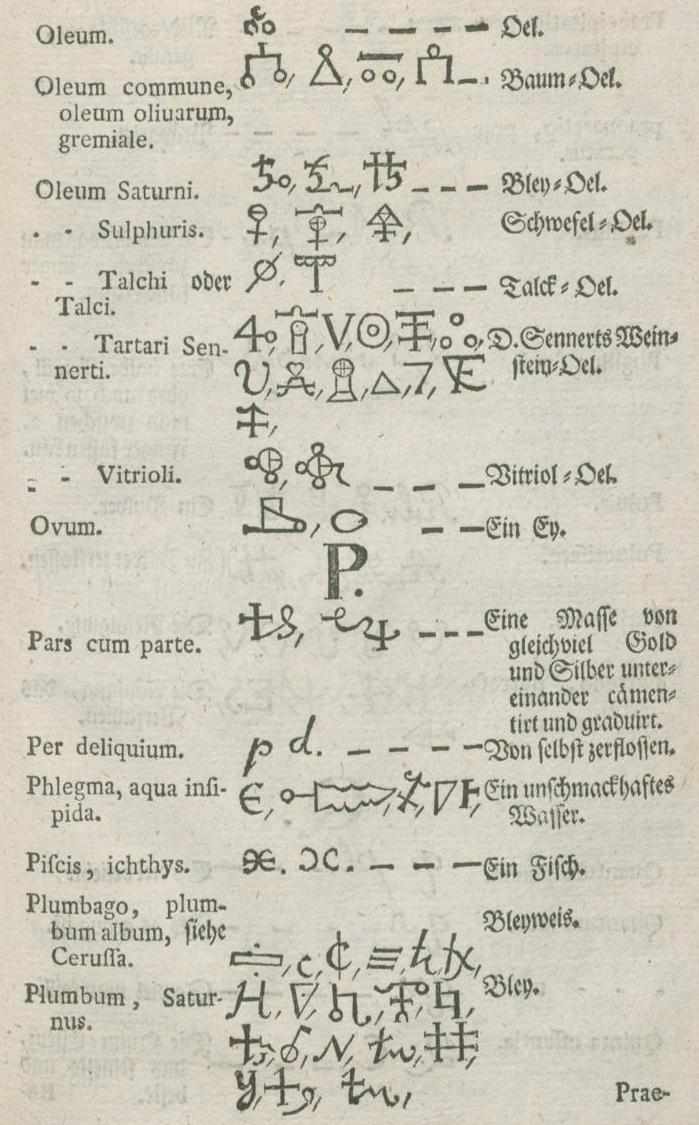 Oleum. — — — — Oel.
Oleum commune, — . Baum⸗Oel.
oleum oliuarum,
gremiale.
Oleum Saturni. — — — Bley⸗Oel.
. - Sulphuris. Schwefel⸗Oel.
- - Talchi oder — — — Talck⸗Oel.
Talci.
- - Tartari Sen- D. Sennerts Wein⸗
nerti. stein⸗Oel.
- - Vitrioli. — — — Vitriol⸗Oel.
Ovum. — — Ein Ey.
P.
Pars cum parte. — — — Eine Masse von
gleichviel Gold
und Silber unter⸗
einander cämen⸗
tirt und graduirt.
Per deliquium. p d. — — — — Von selbst zerflossen.
Phlegma, aqua insi- Ein unschmackhaftes
pida. Wasser.
Piſcis, ichthys. — — — Ein Fisch.
Plumbago, plum- Bleyweis.
bum album, siehe
Ceruſſa.
Plumbum, Satur- Bley.
nus.
Prae-